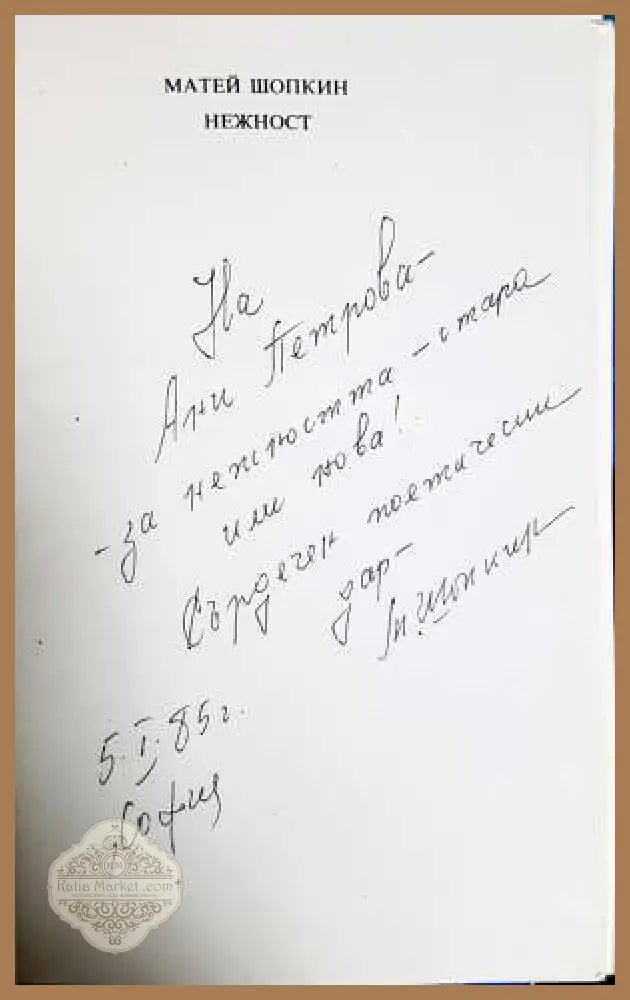 МАТЕЙ ШОПКИН
НЕЖНОСТ
На
Ани Петрова-
- за нежността - стара
или нова!
Сърдечен поетически
дар-
М. Шопкин
5.I.85г.
София
Katia Market.com